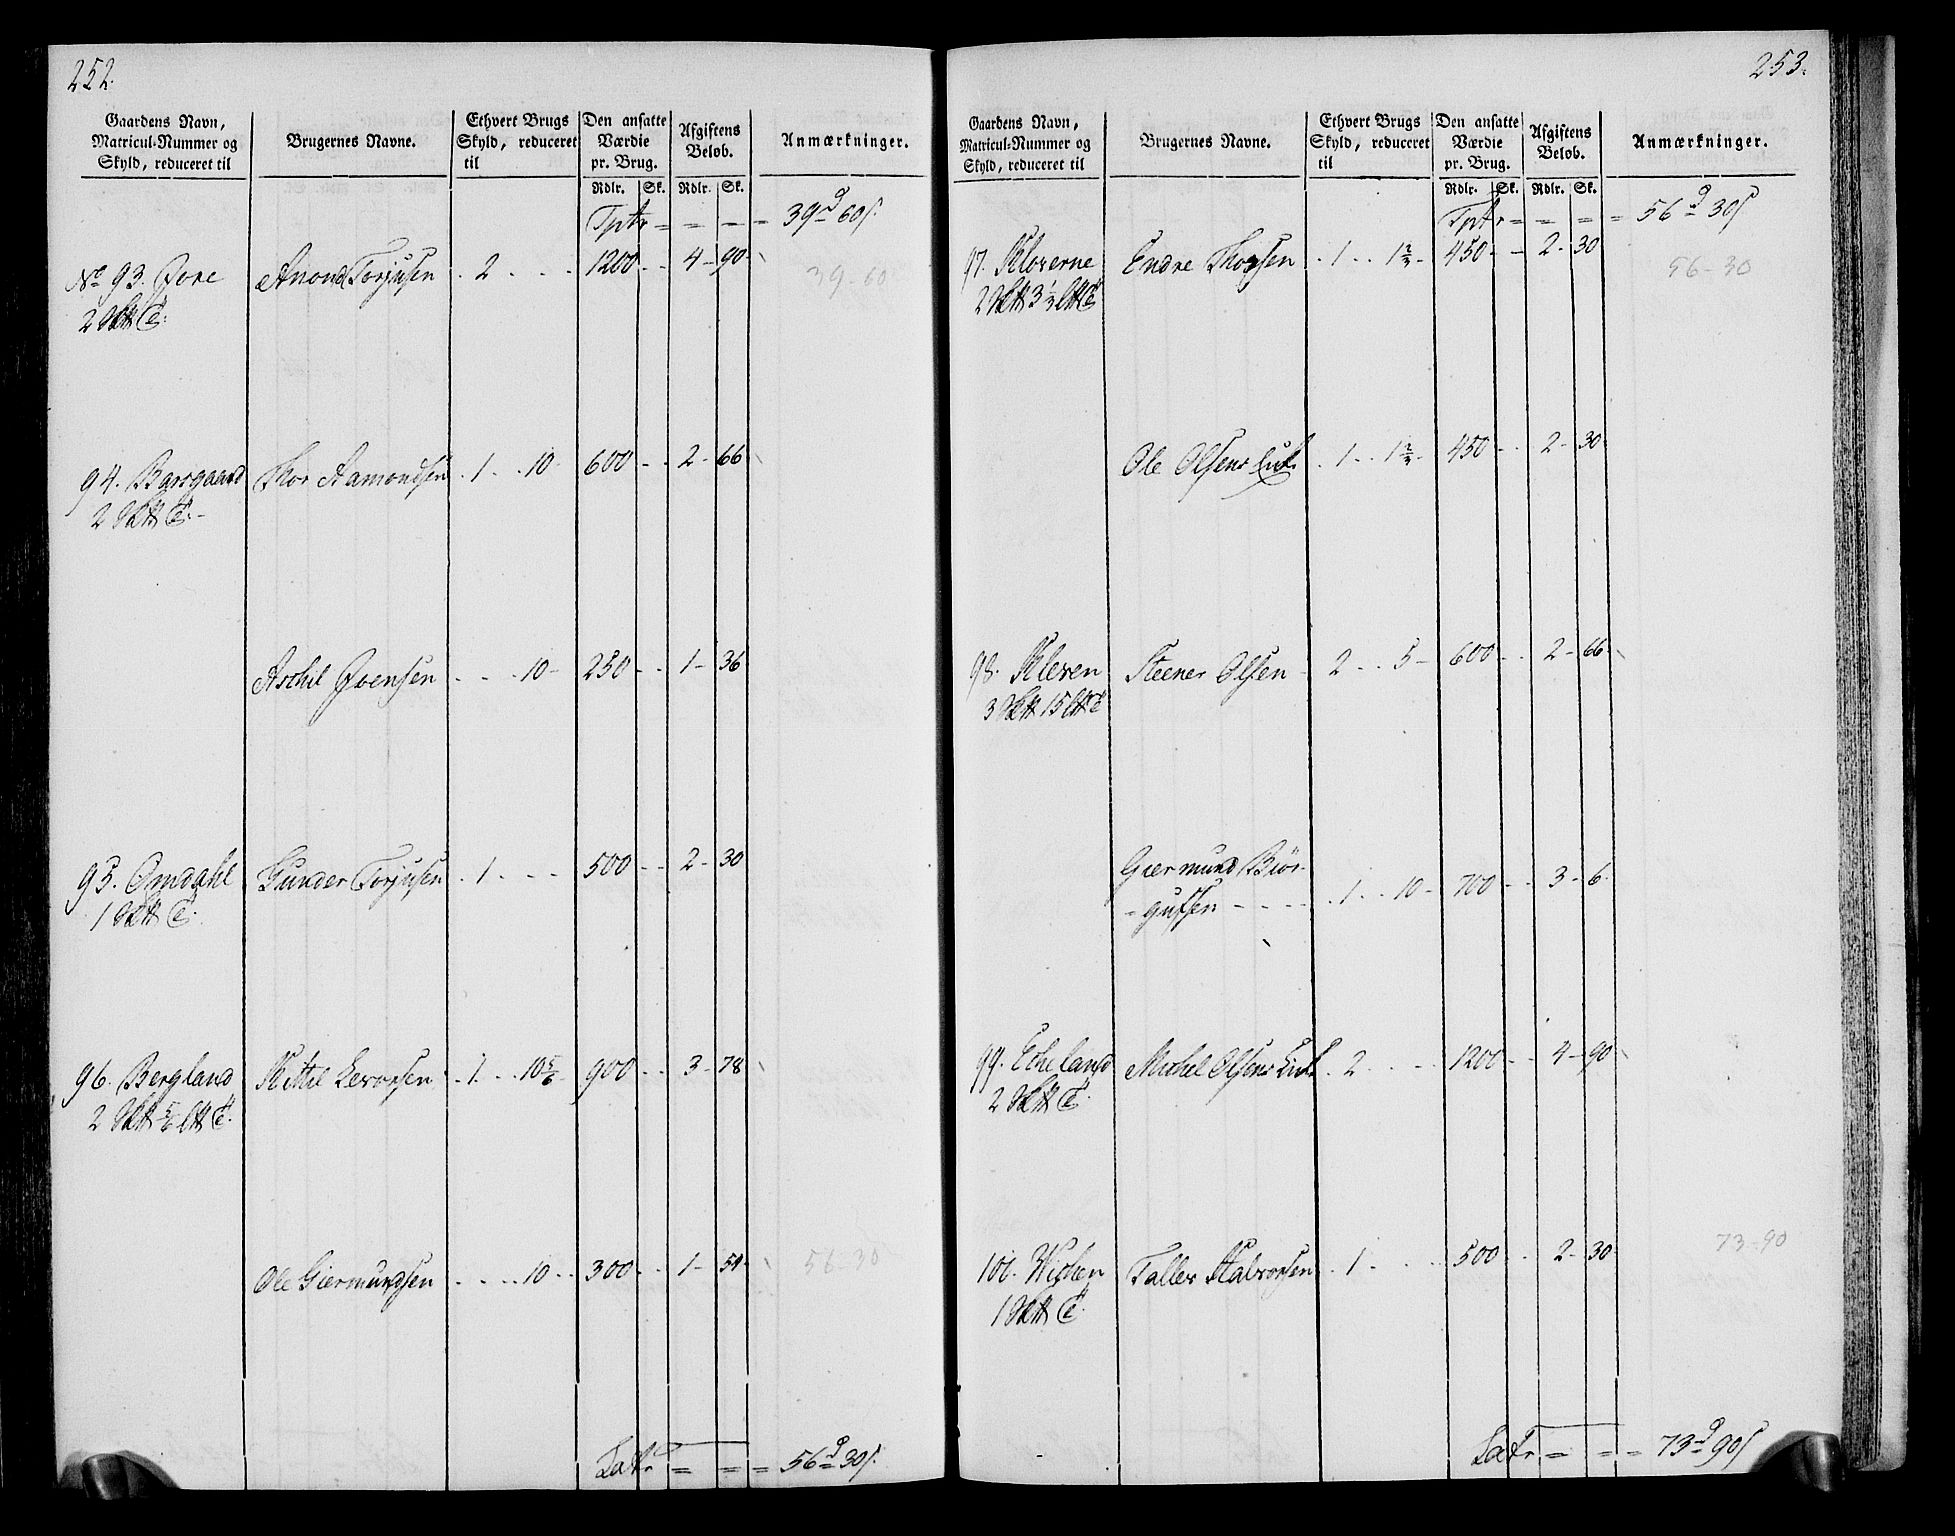 252.
Gaardens Navn, Matricul-Nummer og Skyld, reduceret til
Brugernes Navne.
Ethvert Brugs Skyld, reduceret til
Den ansatte Værdie pr. Brug.
Afgiftens Beløb.
Anmærkninger.
Rdlr. Sk. Rdlr. Sk.
Tptr = = = = 39 d 60 s.
No 93. Jore Anond Torjusen . 2 . . . 1200 - - 4 - 90 -
39-60
2
94. Barsgaard Thor Aamondsen . 1 . . 10 - 600 - - 2 - 66
2
Aschil Joensen . . . . 10 - 250 - - 1 - 36
95. Omdahl Gunder Torjusen . 1 . . . . 500 - - 2 - 30
1
96. Bergland Kittil Levorsen . 1 . . . 10 5/6 - 900 - - 3 - 78
2 5/6
Ole Giermundsen . . . . 10 . . 300 - - 1 - 54 -
56-30
Latr = = = 56 d 30 s.
253.
Gaardens Navn, Matricul-Nummer og Skyld, reduceret til
Brugernes Navne.
Ethvert Brugs Skyld, reduceret til
Den ansatte Værdie pr. Brug.
Afgiftens Beløb.
Anmærkninger.
Rdlr. Sk. Rdlr. Sk.
Tptr = = = = 56 d 30 s
97. Kloverne Endre Thorsen . 1 . . 1 2/3 - 450 - - 2 - 30
56-30
2 3 1/3
Ole Olsens . 1 . . 1 2/3 - 450 - - 2 - 30
98. Kleven Steener Olsen - 2 . . 5 - 600 - . 2 - 66 -
3 15
Giermund Biør-
- gufsen - - - - . 1 . . 10 - 700 - - 3 - 6.
99. Eheland Michel Olsens . 2 . . . . 1200 - - 4 - 90
2
100. Wighen Tallev Halvorsen . 1 . . . . 500 - . 2 - 30 -
73-90
1
Latr = = = 73 d 90 s